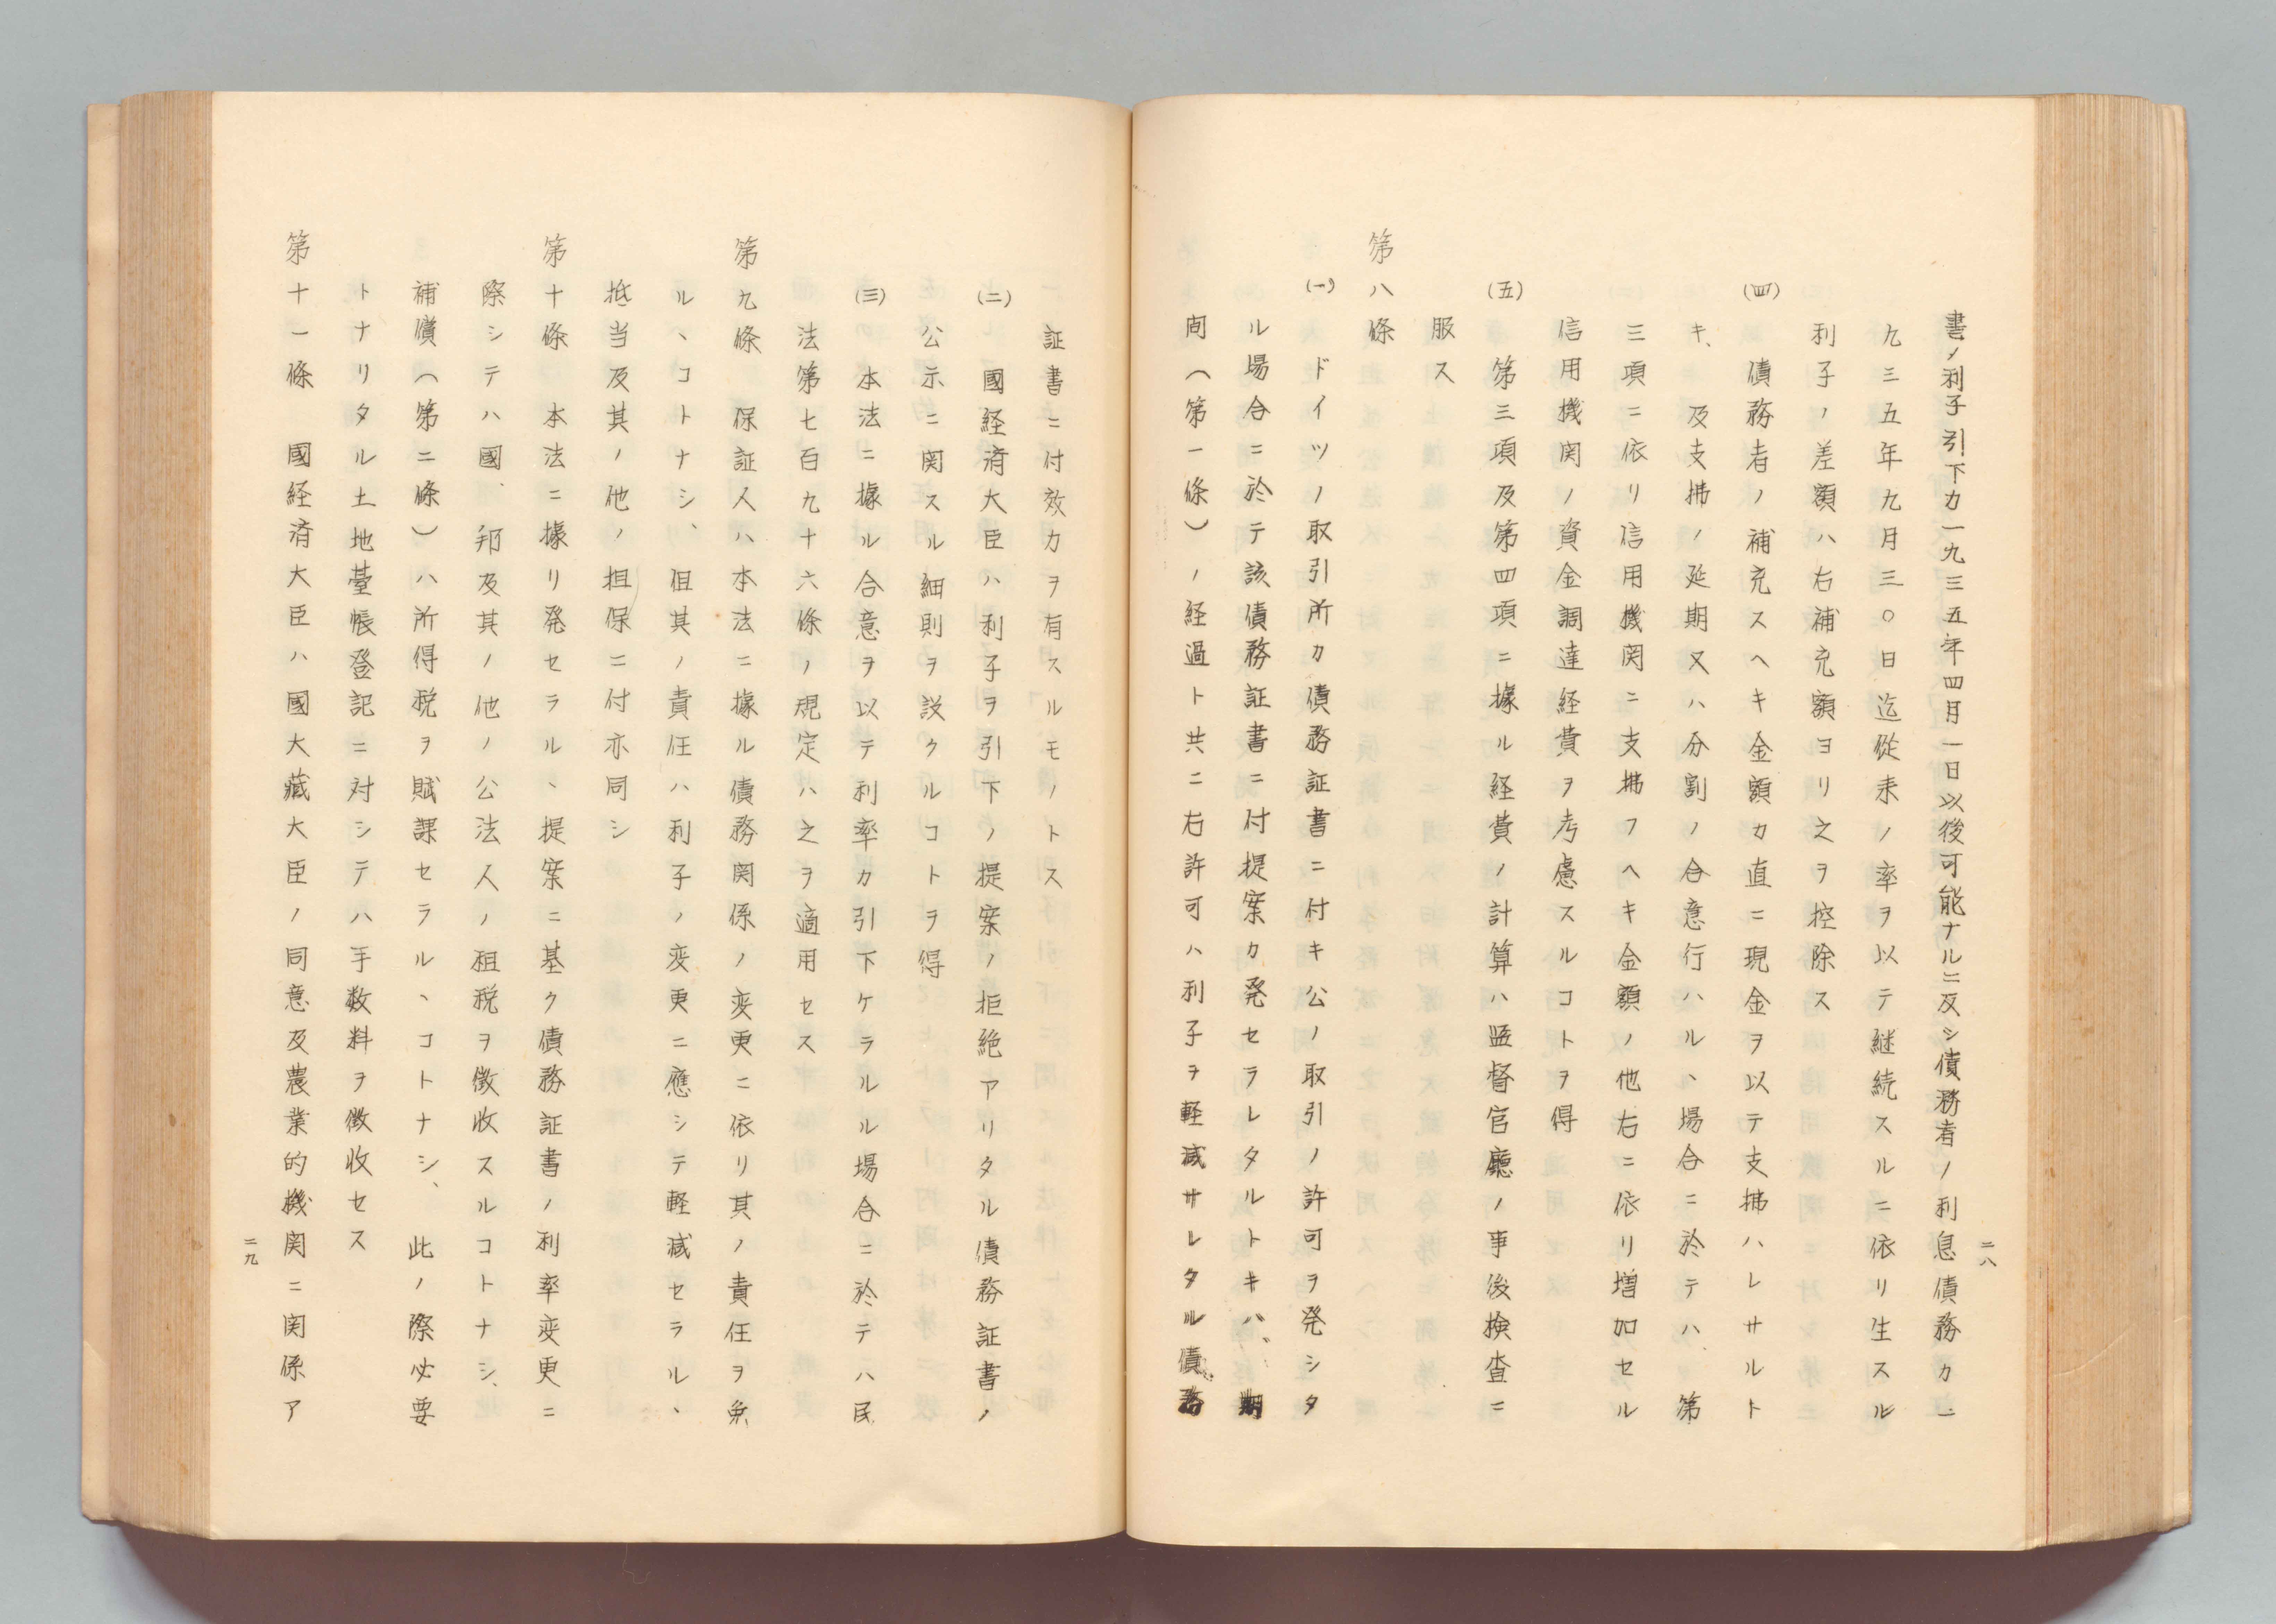 書ノ利子引下カ一九三五年四月一日以後可能ナルニ反シ債務者ノ利息債務カ一
九三五年九月三〇日迄従来ノ率ヲ以テ継続スルニ依リ生スル
利子ノ差額ハ右補充額ヨリ之ヲ控除ス
(四) 債務者ノ補充スヘキ金額カ直ニ現金ヲ以テ支拂ハレサルト
キ、及支拂ノ延期又ハ分割ノ合意行ハル、場合ニ於テハ、第
三項ニ依リ信用機関ニ支拂フヘキ金額ノ他右ニ依リ増加セル
信用機関ノ資金調達経費ヲ考慮スルコトヲ得
(五) 第三項及第四項ニ據ル経費ノ計算ハ監督官廳ノ事後検査ニ
服ス
第八條
(一) ドイツノ取引所カ債務証書ニ付キ公ノ取引ノ許可ヲ発シタ
ル場合ニ於テ該債務証書ニ付提案カ発セラレタルトキハ、期
間(第一條)ノ経過ト共ニ右許可ハ利子ヲ軽減サレタル債務
二八
証書ニ付効力ヲ有スルモノトス
(二) 國経済大臣ハ利子ヲ引下ノ提案ノ拒絶アリタル債務証書ノ
公示ニ関スル細則ヲ設クルコトヲ得
(三) 本法ニ據ル合意ヲ以テ利率カ引下ケラルル場合ニ於テハ民
法第七百九十六條ノ規定ハ之ヲ適用セス
第九條 保証人ハ本法ニ據ル債務関係ノ変更ニ依リ其ノ責任ヲ免
ル、コトナシ、但其ノ責任ハ利子ノ変更ニ應シテ軽減セラル、
抵当及其ノ他ノ担保ニ付亦同シ
第十條 本法ニ據リ発セラル、提案ニ基ク債務証書ノ利率変更ニ
際シテハ國、邦及其ノ他ノ公法人ノ租税ヲ徴收スルコトナシ、
補償(第二條)ハ所得税ヲ賦課セラル、コトナシ、此ノ際必要
トナリタル土地臺帳登記ニ対シテハ手数料ヲ徴收セス
第十一條 國経済大臣ハ國大藏大臣ノ同意及農業的機関ニ関係ア
二九